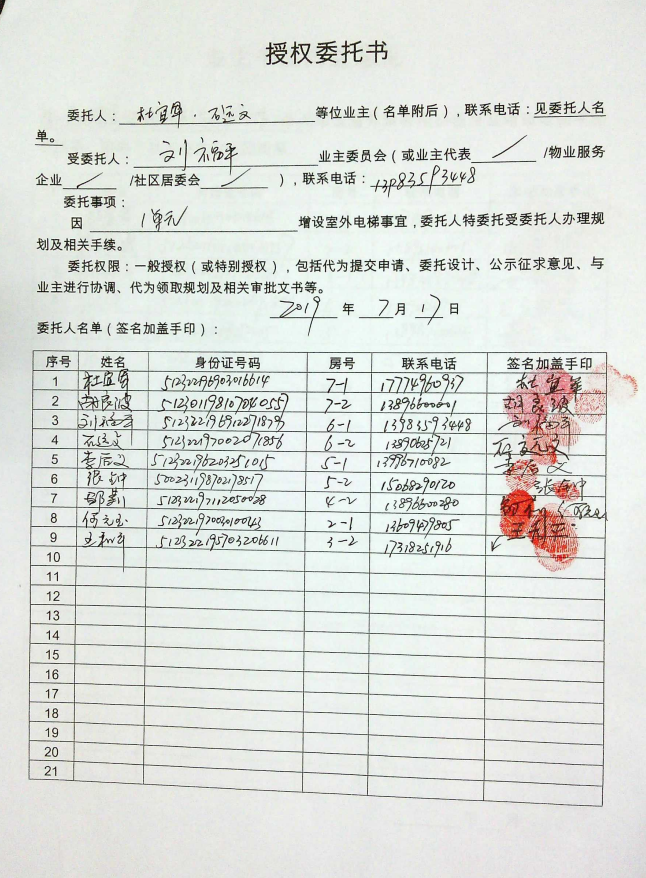 授权委托书
委托人：杜宜军、石远文等位业主（名单附后），联系电话：见委托人名
单。
受委托人：刘福平 业主委员会（或业主代表 / /物业服务
企业 / /社区居委会 / ），联系电话：13983593448
委托事项：
因 1单元 增设室外电梯事宜，委托人特委托受委托人办理规
划及相关手续。
委托权限：一般授权（或特别授权），包括代为提交申请、委托设计、公示征求意见、与
业主进行协调、代为领取规划及相关审批文书等。
2019 年 7 月 17 日
委托人名单（签名加盖手印）：
序号 姓名 身份证号码 房号 联系电话 签名加盖手印
1 杜宜军 7-1 17774960937 杜宜军
2 胡良波 7-2 13896600001 胡良波
3 刘福平 6-1 13983593448
4 石远文 6-2 13890625721 石远文
5 李后文 5-1 13996710082 李后文
6 张钟 500231198702178517 5-2 15068290120 张钟
7 4-2 13896600280
8 何元玉 2-1 13609479805
9 王利平 512322195703206611 3-2 17318251916 王利平
10
11
12
13
14
15
16
17
18
19
20
21